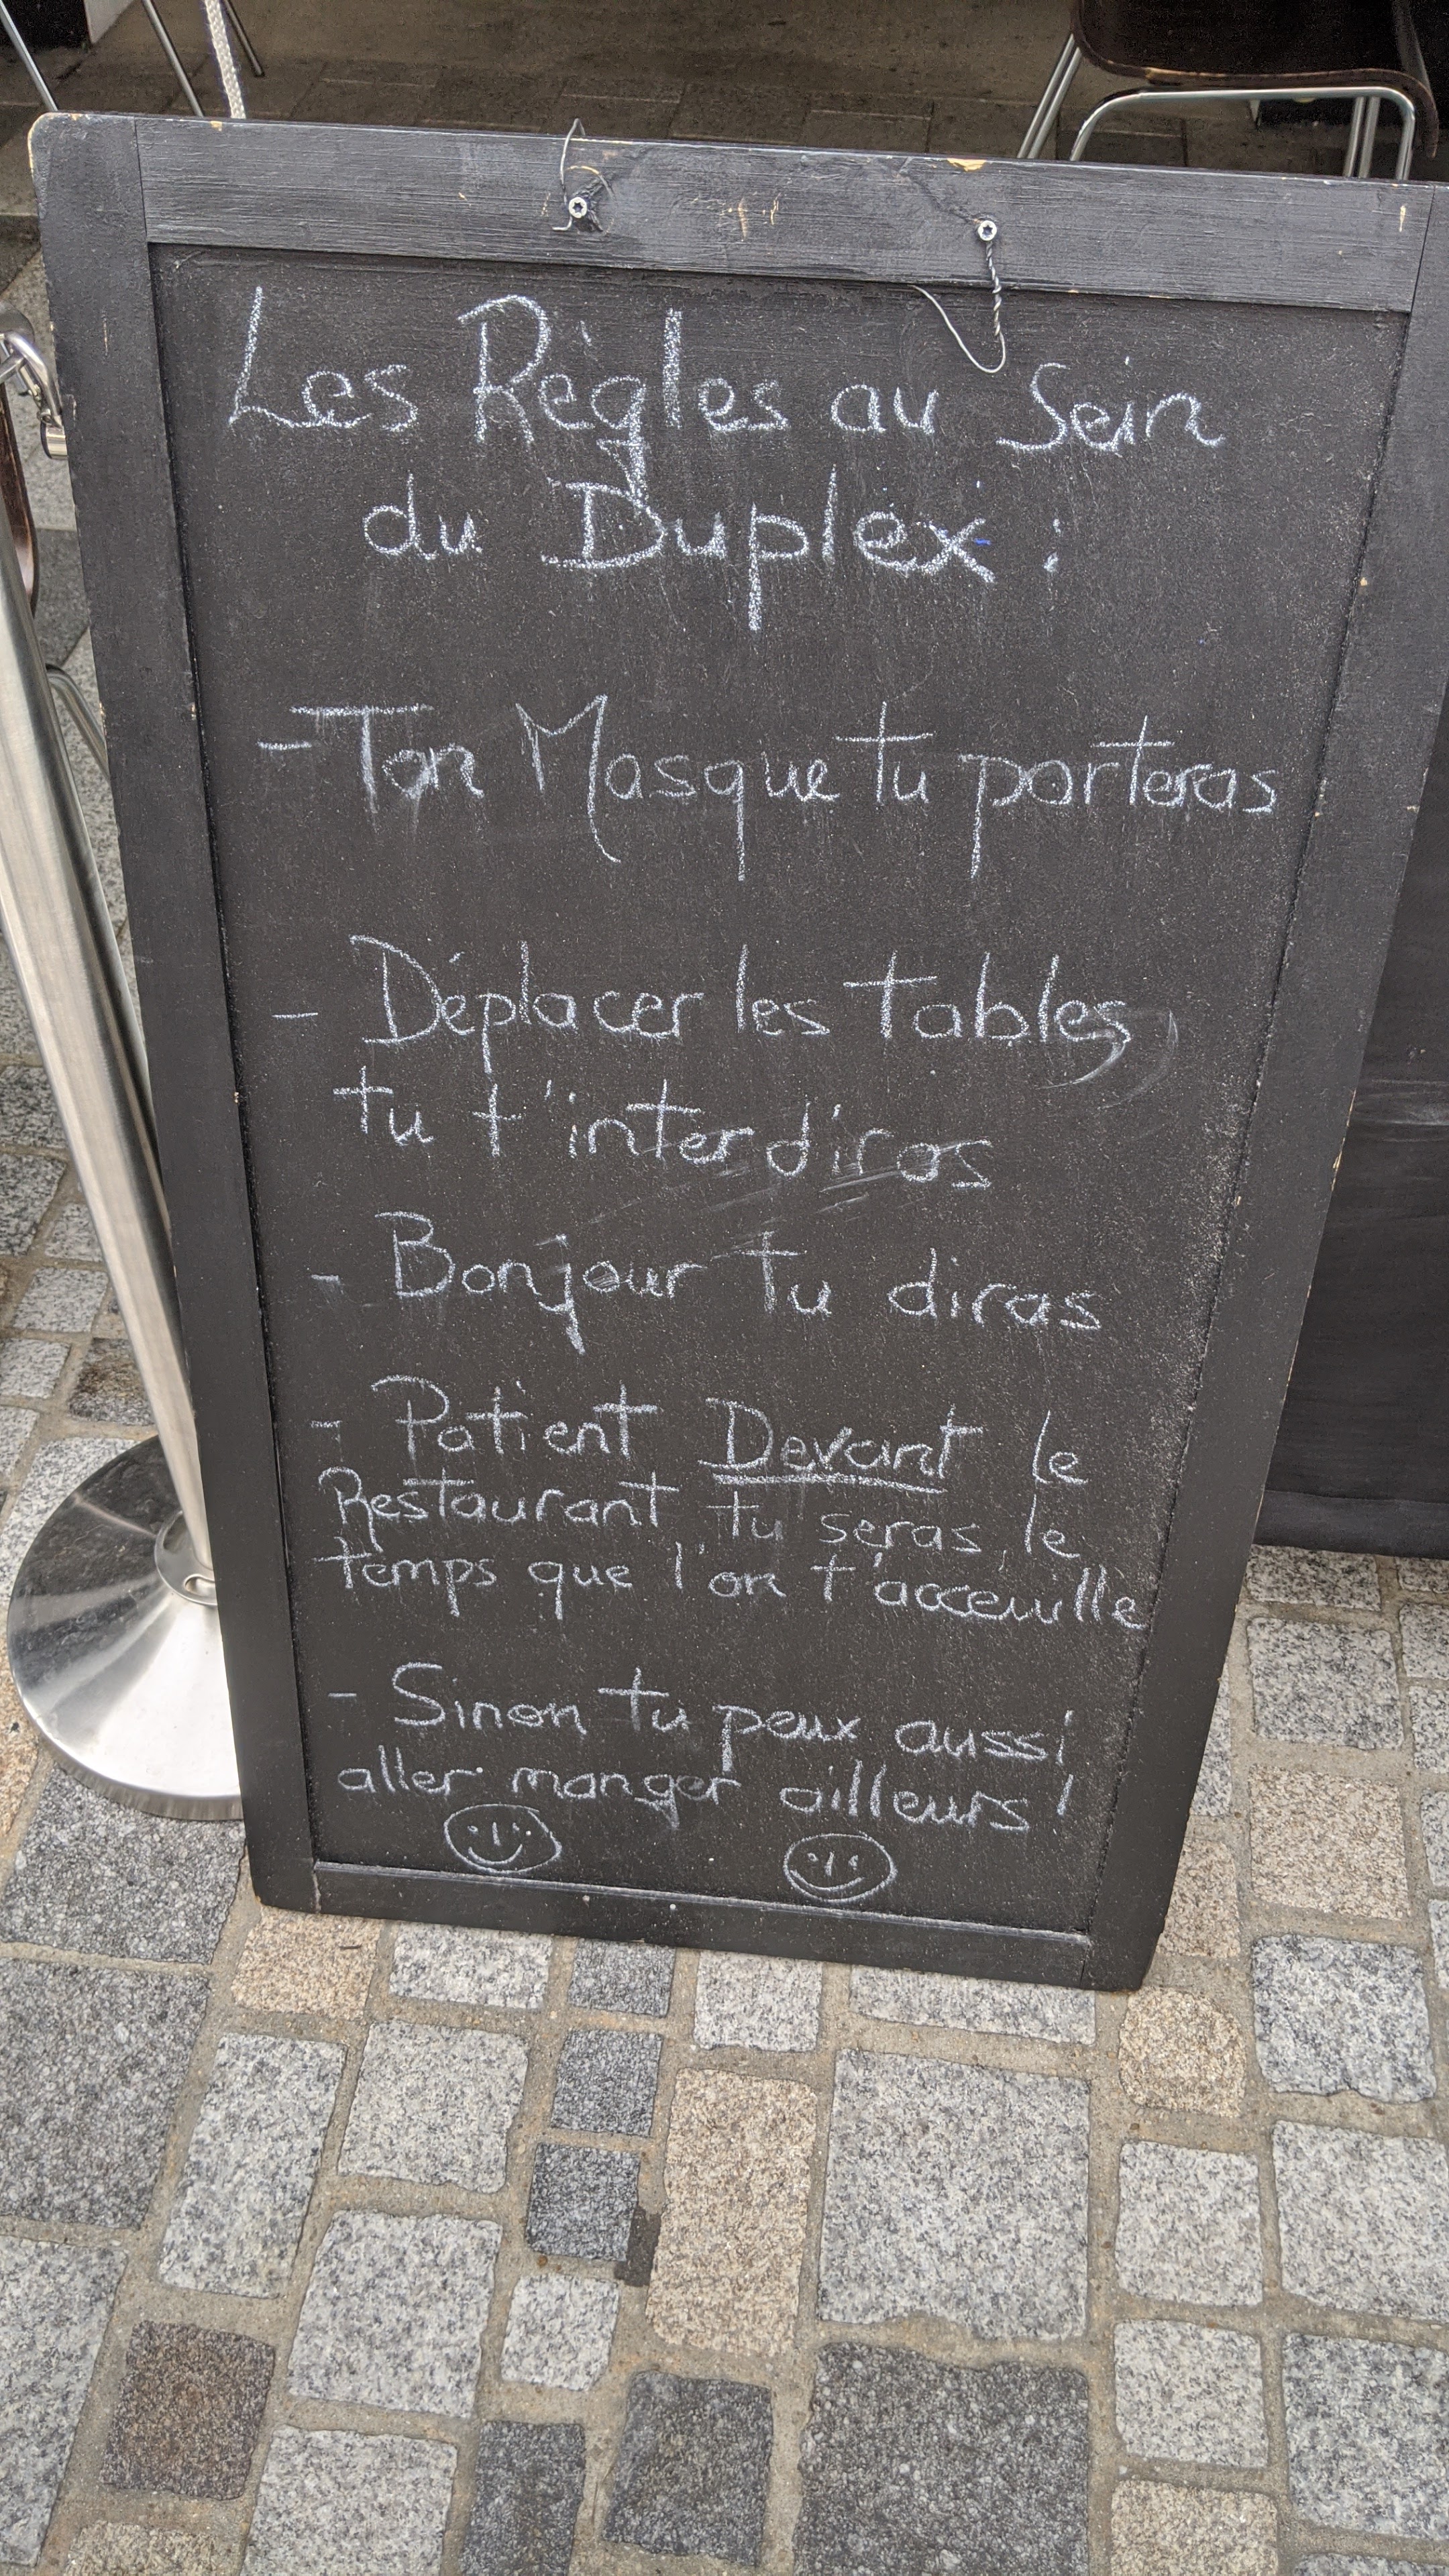 Les Règles au Sein
du Duplex :
- Ton Masque tu porteras
- Déplacer les tables,
tu t'interdiras
- Bonjour tu diras
- Patient Devant le
Restaurant tu seras, le
temps que l'on t'acceuille
- Sinon tu peux aussi
aller manger ailleurs !